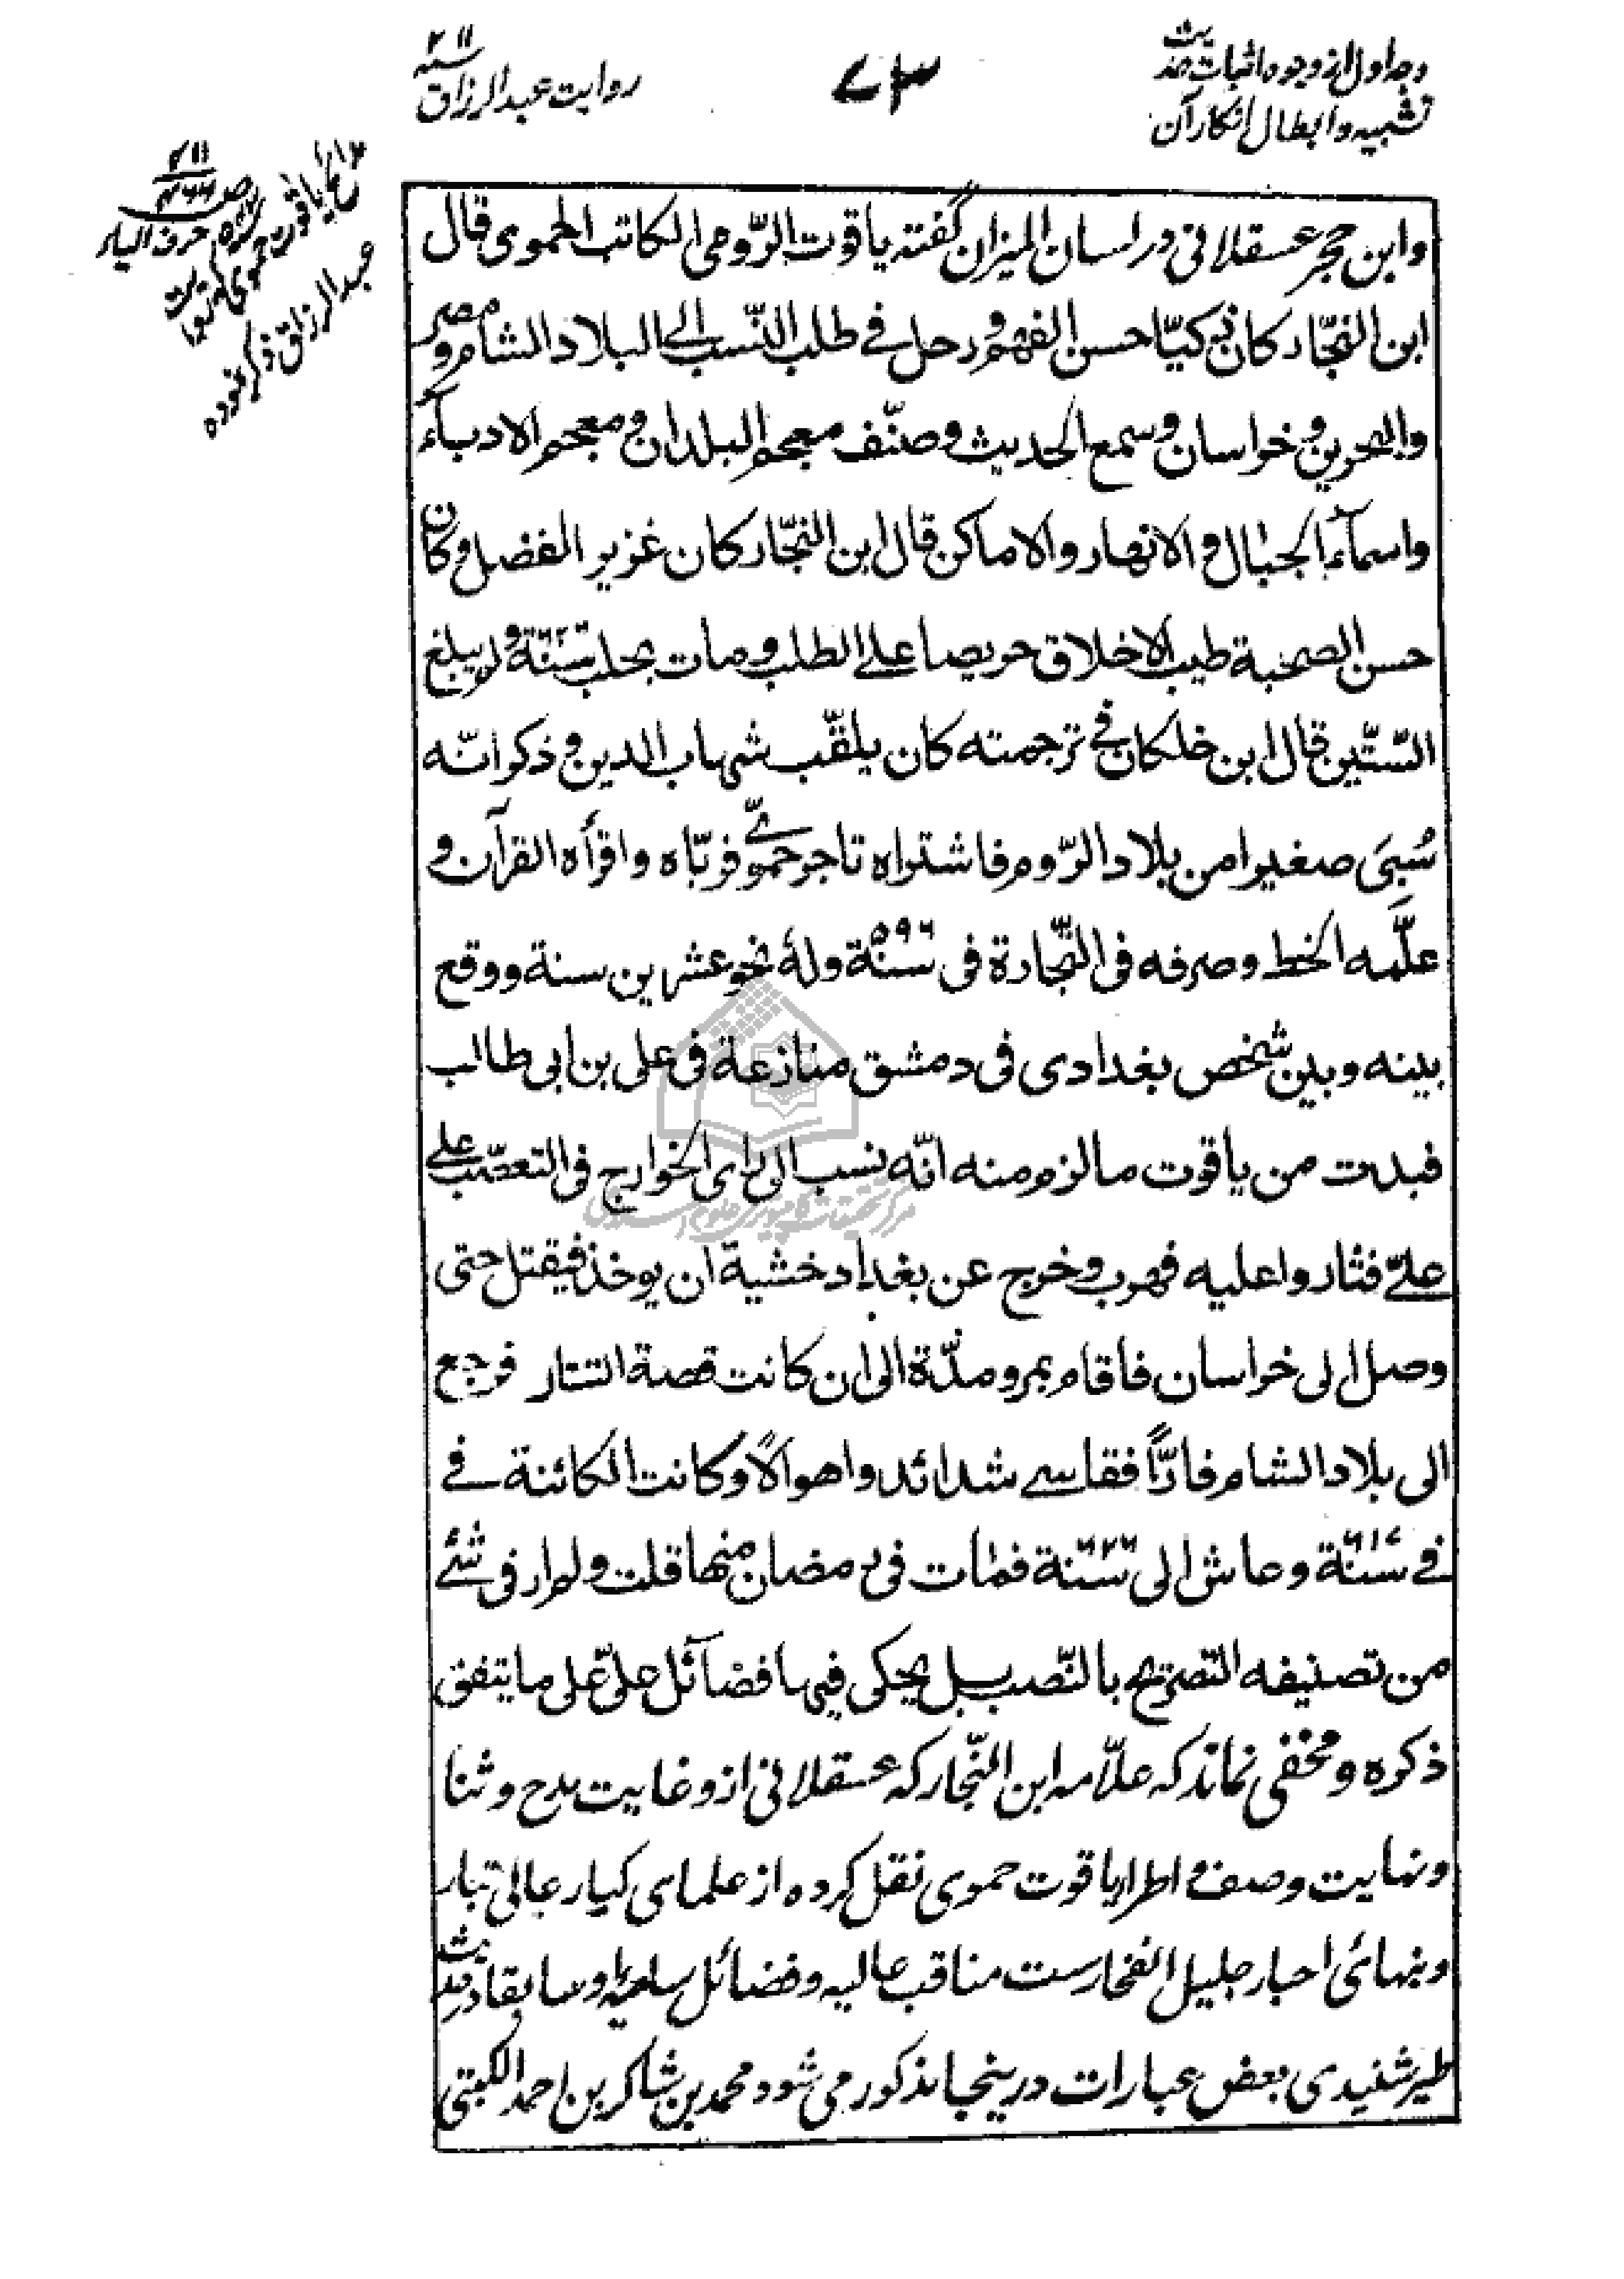 وجه اول از وجوه اثبات حدیث
تشبیه و ابطال انکار آن
۷۳
روایت عبدالرزاق سنه ۲۱۱
یاقوت حموی که روایت
عبدالرزاق ذکر نموده
حرف الیاء
وابن حجر عسقلانی در لسان المیزان گفته یاقوت الرّومی الکاتب الحموی قال
ابن النجّار کان ذکیّا حسن الفهم و رحل فی طلب النّسب الی البلاد الشام و مصر
والبحرین و خراسان و سمع الحدیث و صنّف معجم البلدان و معجم الادبآء
و اسمآء الجبال و الانهار و الاماکن قال ابن النجّار کان غزیر الفضل و کان
حسن الصحبة طیب الاخلاق حریصا علی الطلب و مات بحلب سنة ۶۲۶ و لم یبلغ
السّتّین قال ابن خلکان فی ترجمته کان یلقّب شهاب الدین و ذکر انّه
سُبِیَ صغیرا من بلاد الرّوم فاشتراه تاجر حمویّ فربّاه و اقرأه القرآن و
علّمه الخط و صرفه فی التّجارة فی سنة ۵۹۶ وله نحو عشرین سنة و وقع
بینه و بین شخص بغدادی فی دمشق منازعة فی علی بن ابی طالب
فبدت من یاقوت ما لزم منه انّه نسب الی رای الخوارج فی التعصّب علی
علیّ فثاروا علیه فهرب و خرج عن بغداد خشیة ان یوخذ فیقتل حتی
وصل الی خراسان فاقام بمرو مدّة الی ان کانت قصة التتار فرجع
الی بلاد الشام فارّاً فقاسی شدائد و اهوالاً و کانت الکائنة فی
فی سنة ۶۱۷ و عاش الی سنة ۶۲۶ فمات فی رمضان منها قلت و لم ار فی شئ
من تصنیفه التصریح بالنّصب بل یحکی فیها فضآئل علیّ علی ما یتفق
ذکره و مخفی نماند که علّامه ابن النّجار که عسقلانی ازو غایت مدح و ثنا
و نهایت وصف و اطرار یاقوت حموی نقل کرده از علمای کبار عالی تبار
و نبهائی احبار جلیل الفخارست مناقب عالیه و فضائل سامیه او سابقا در حدیث
طیر شنیدی بعض عبارات درینجا مذکور می شود محمد بن شاکر بن احمد الکتبی